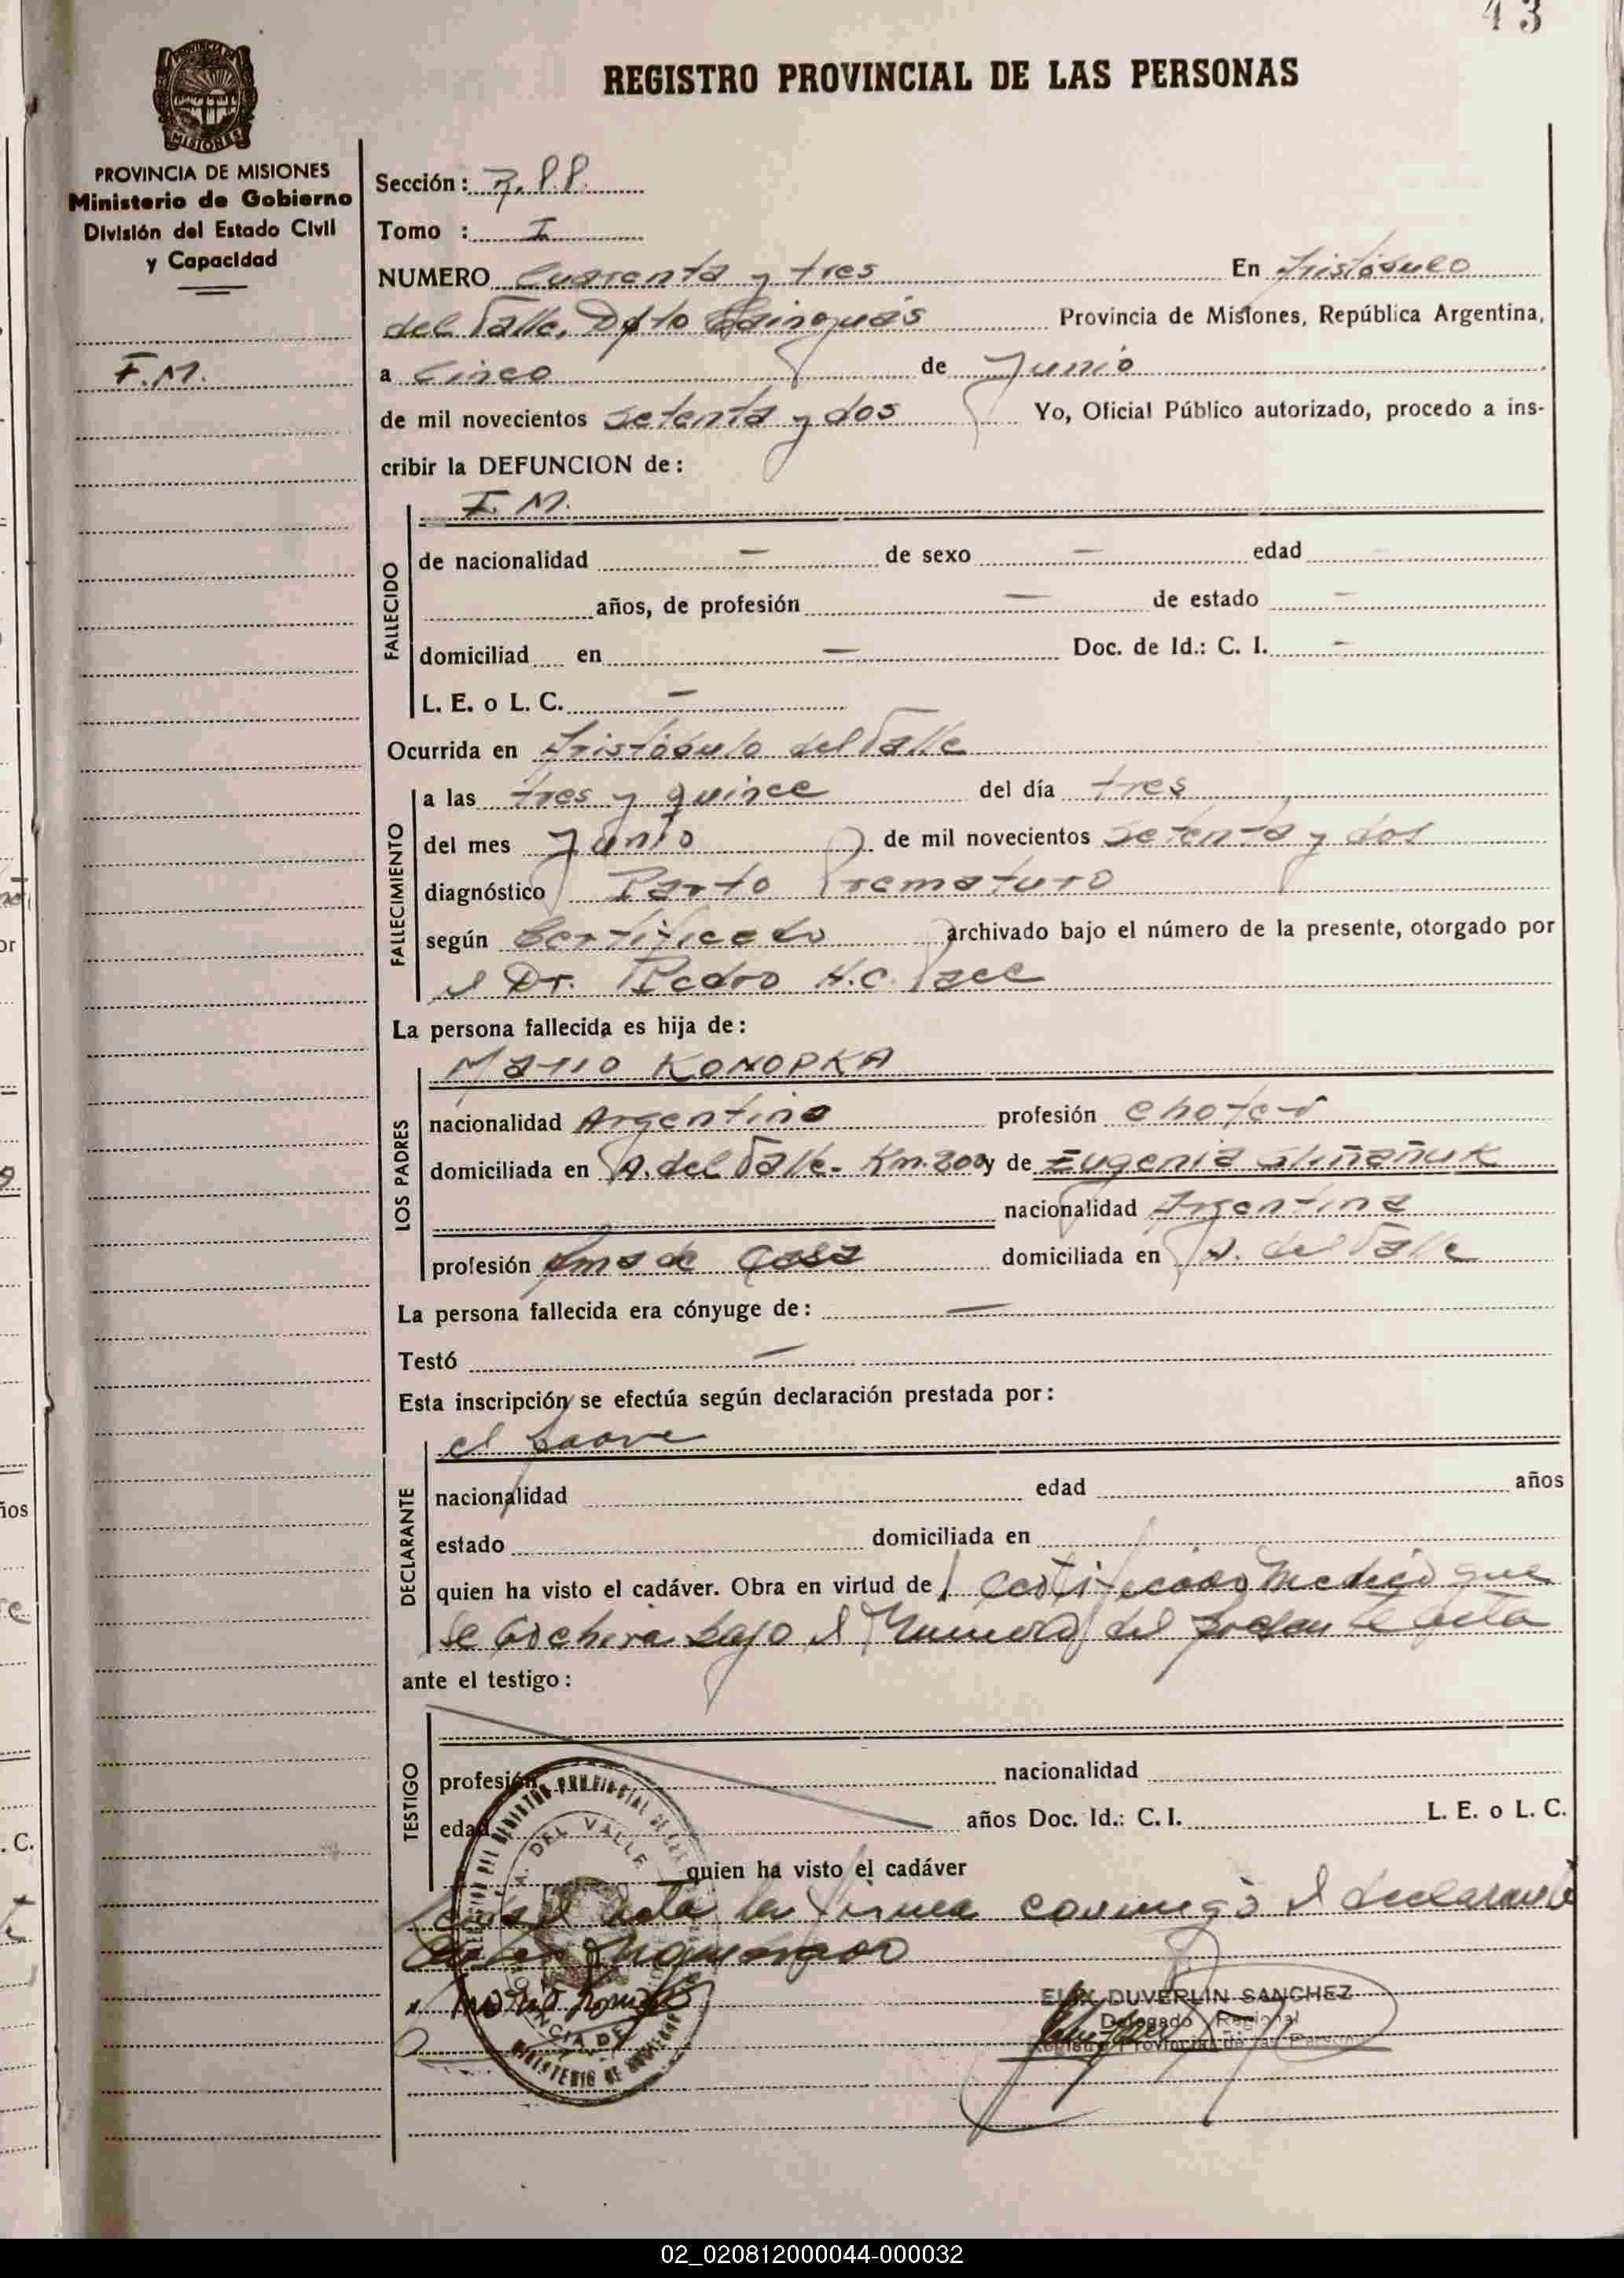 43
REGISTRO PROVINCIAL DE LAS PERSONAS
PROVINCIA DE MISIONES
Ministerio de Gobierno
División del Estado Civil
y Capacidad
F.M.
Sección:
Tomo : I
NUMERO Cuarenta y tres En Aristóbulo
del Valle, Dpto Cainguás Provincia de Misiones, República Argentina,
a Cinco de Junio
de mil novecientos setenta y dos Yo, Oficial Público autorizado, procedo a ins-
cribir la DEFUNCION de:
F.M.
FALLECIDO
de nacionalidad — de sexo — edad
años, de profesión — de estado —
domiciliad en — Doc. de Id.: C. I. —
L. E. o L. C. —
Ocurrida en Aristóbulo del Valle
FALLECIMIENTO
a las tres y quince del día tres
del mes Junio de mil novecientos setenta y dos
diagnóstico Parto Prematuro
según Certificado archivado bajo el número de la presente, otorgado por
el Dr. Pedro H.C.
La persona fallecida es hija de:
LOS PADRES
Mario KONOPKA
nacionalidad Argentino profesión chofer
domiciliada en A. del Valle- Km. 200 y de Eugenia
nacionalidad Argentina
profesión Ama de Casa domiciliada en A. del Valle
La persona fallecida era cónyuge de: —
Testó —
Esta inscripción se efectúa según declaración prestada por:
DECLARANTE
el padre
nacionalidad edad años
estado domiciliada en
quien ha visto el cadáver. Obra en virtud de certificado medico que
se archiva bajo el Numero del presente acta
ante el testigo:
TESTIGO
profesión nacionalidad
edad años Doc. Id.: C. I. L. E. o L. C.
quien ha visto el cadáver
acta la firma conmigo el declarante
A. DEL VALLE
ELIX DUVERLIN SANCHEZ
Delegado Regional
Registro Provincial de las Personas
02_020812000044-000032